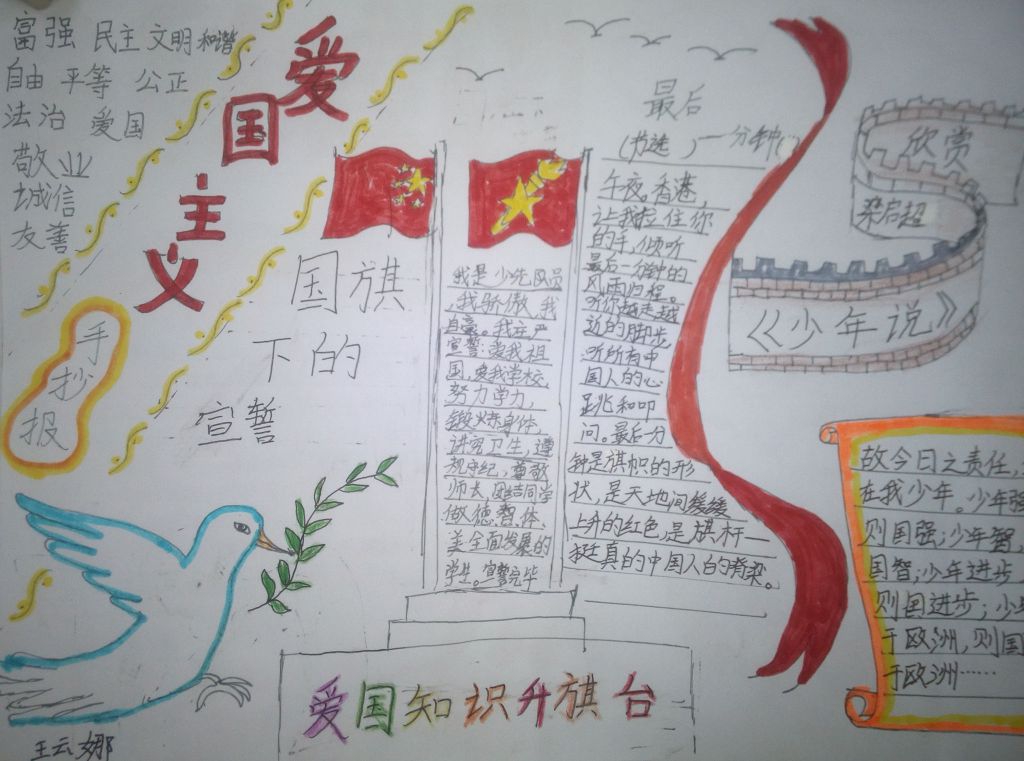 富强 民主 文明 和谐
自由 平等 公正
法治 爱国
敬业
诚信
友善
爱国主义
手抄报
国旗
下的
宣誓
我是少先队员
我骄傲、我
自豪。我庄严
宣誓:爱我祖
国,爱我学校,
努力学力,
锻炼身体,
讲究卫生,遵
规守纪,尊敬
师长,团结同学
做德、智、体、
美全面发展的
学生。宣誓完毕
最后
(节选)一分钟
午夜,香港,
让我拉住你
的手,倾听
最后一分钟的
风雨归程。
听你越走越
近的脚步,
听所有中
国人的心
跳和叩
问。最后一分
钟是旗帜的形
状,是天地间缓缓
上升的红色,是旗杆—
挺直的中国人的脊梁。
欣赏
梁启超
《少年说》
故今日之责任,
在我少年。少年强
则国强;少年智,
国智;少年进步,
则国进步;少
于欧洲,则国
于欧洲……
爱国知识升旗台
王云娜